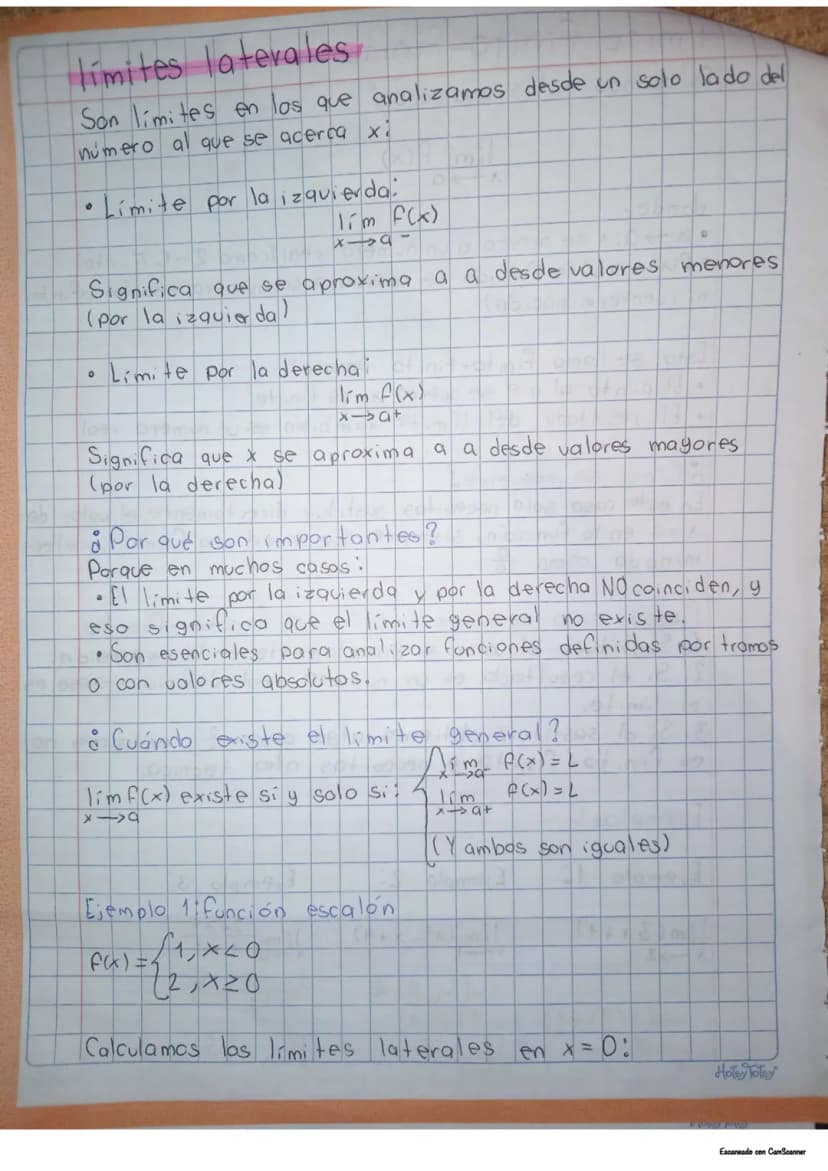 límites laterales
Son límites en los que analizamos desde un solo lado del
número al que se acerca x:
• Límite por la izquierda:
lím f(x)
x→a⁻
Significa que se aproxima a a desde valores menores
(por la izquierda)
• Límite por la derecha:
lím f(x)
x→a+
Significa que x se aproxima a a desde valores mayores
(por la derecha)
¿Por qué son importantes?
Porque en muchos casos:
• El límite por la izquierda y por la derecha NO coinciden, y
eso significa que el límite general no existe.
• Son esenciales para analizar funciones definidas por tramos
o con valores absolutos.
¿Cuándo existe el límite general?
lím f(x) existe si y solo si: { lím f(x) = L
x→a x→a⁻
lím f(x) = L
x→a+
(Y ambos son iguales)
Ejemplo 1: función escalón
f(x) = { 1, x < 0
2, x ≥ 0
Calculamos los límites laterales en x = 0:
HotsyTotsy
Escaneado con CamScanner